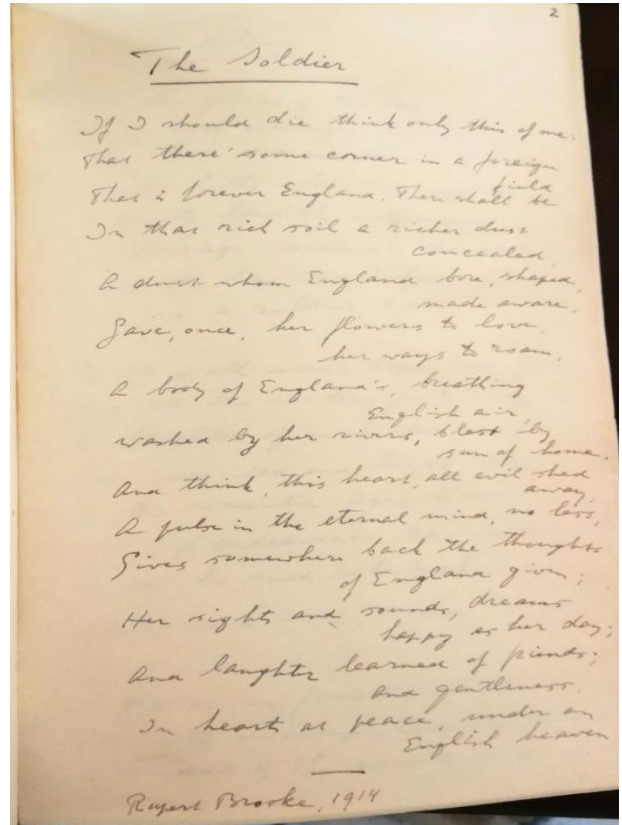 2
The Soldier
If I should die think only this of me:
That there's some corner in a foreign
field
That is forever England. There shall be
In that rich soil a richer dust
concealed,
A dust whom England bore, shaped,
made aware,
Gave, once, her flowers to love,
her ways to roam,
A body of England's, breathing
English air,
Washed by her rivers, blest by
sun of home.
And think, this heart, all evil shed
away,
A pulse in the eternal mind, no less,
Gives somewhere back the thoughts
of England given;
Her sights and sounds, dreams
happy as her day;
And laughter learned of friends;
and gentleness.
In hearts at peace, under an
English heaven
Rupert Brooke, 1914